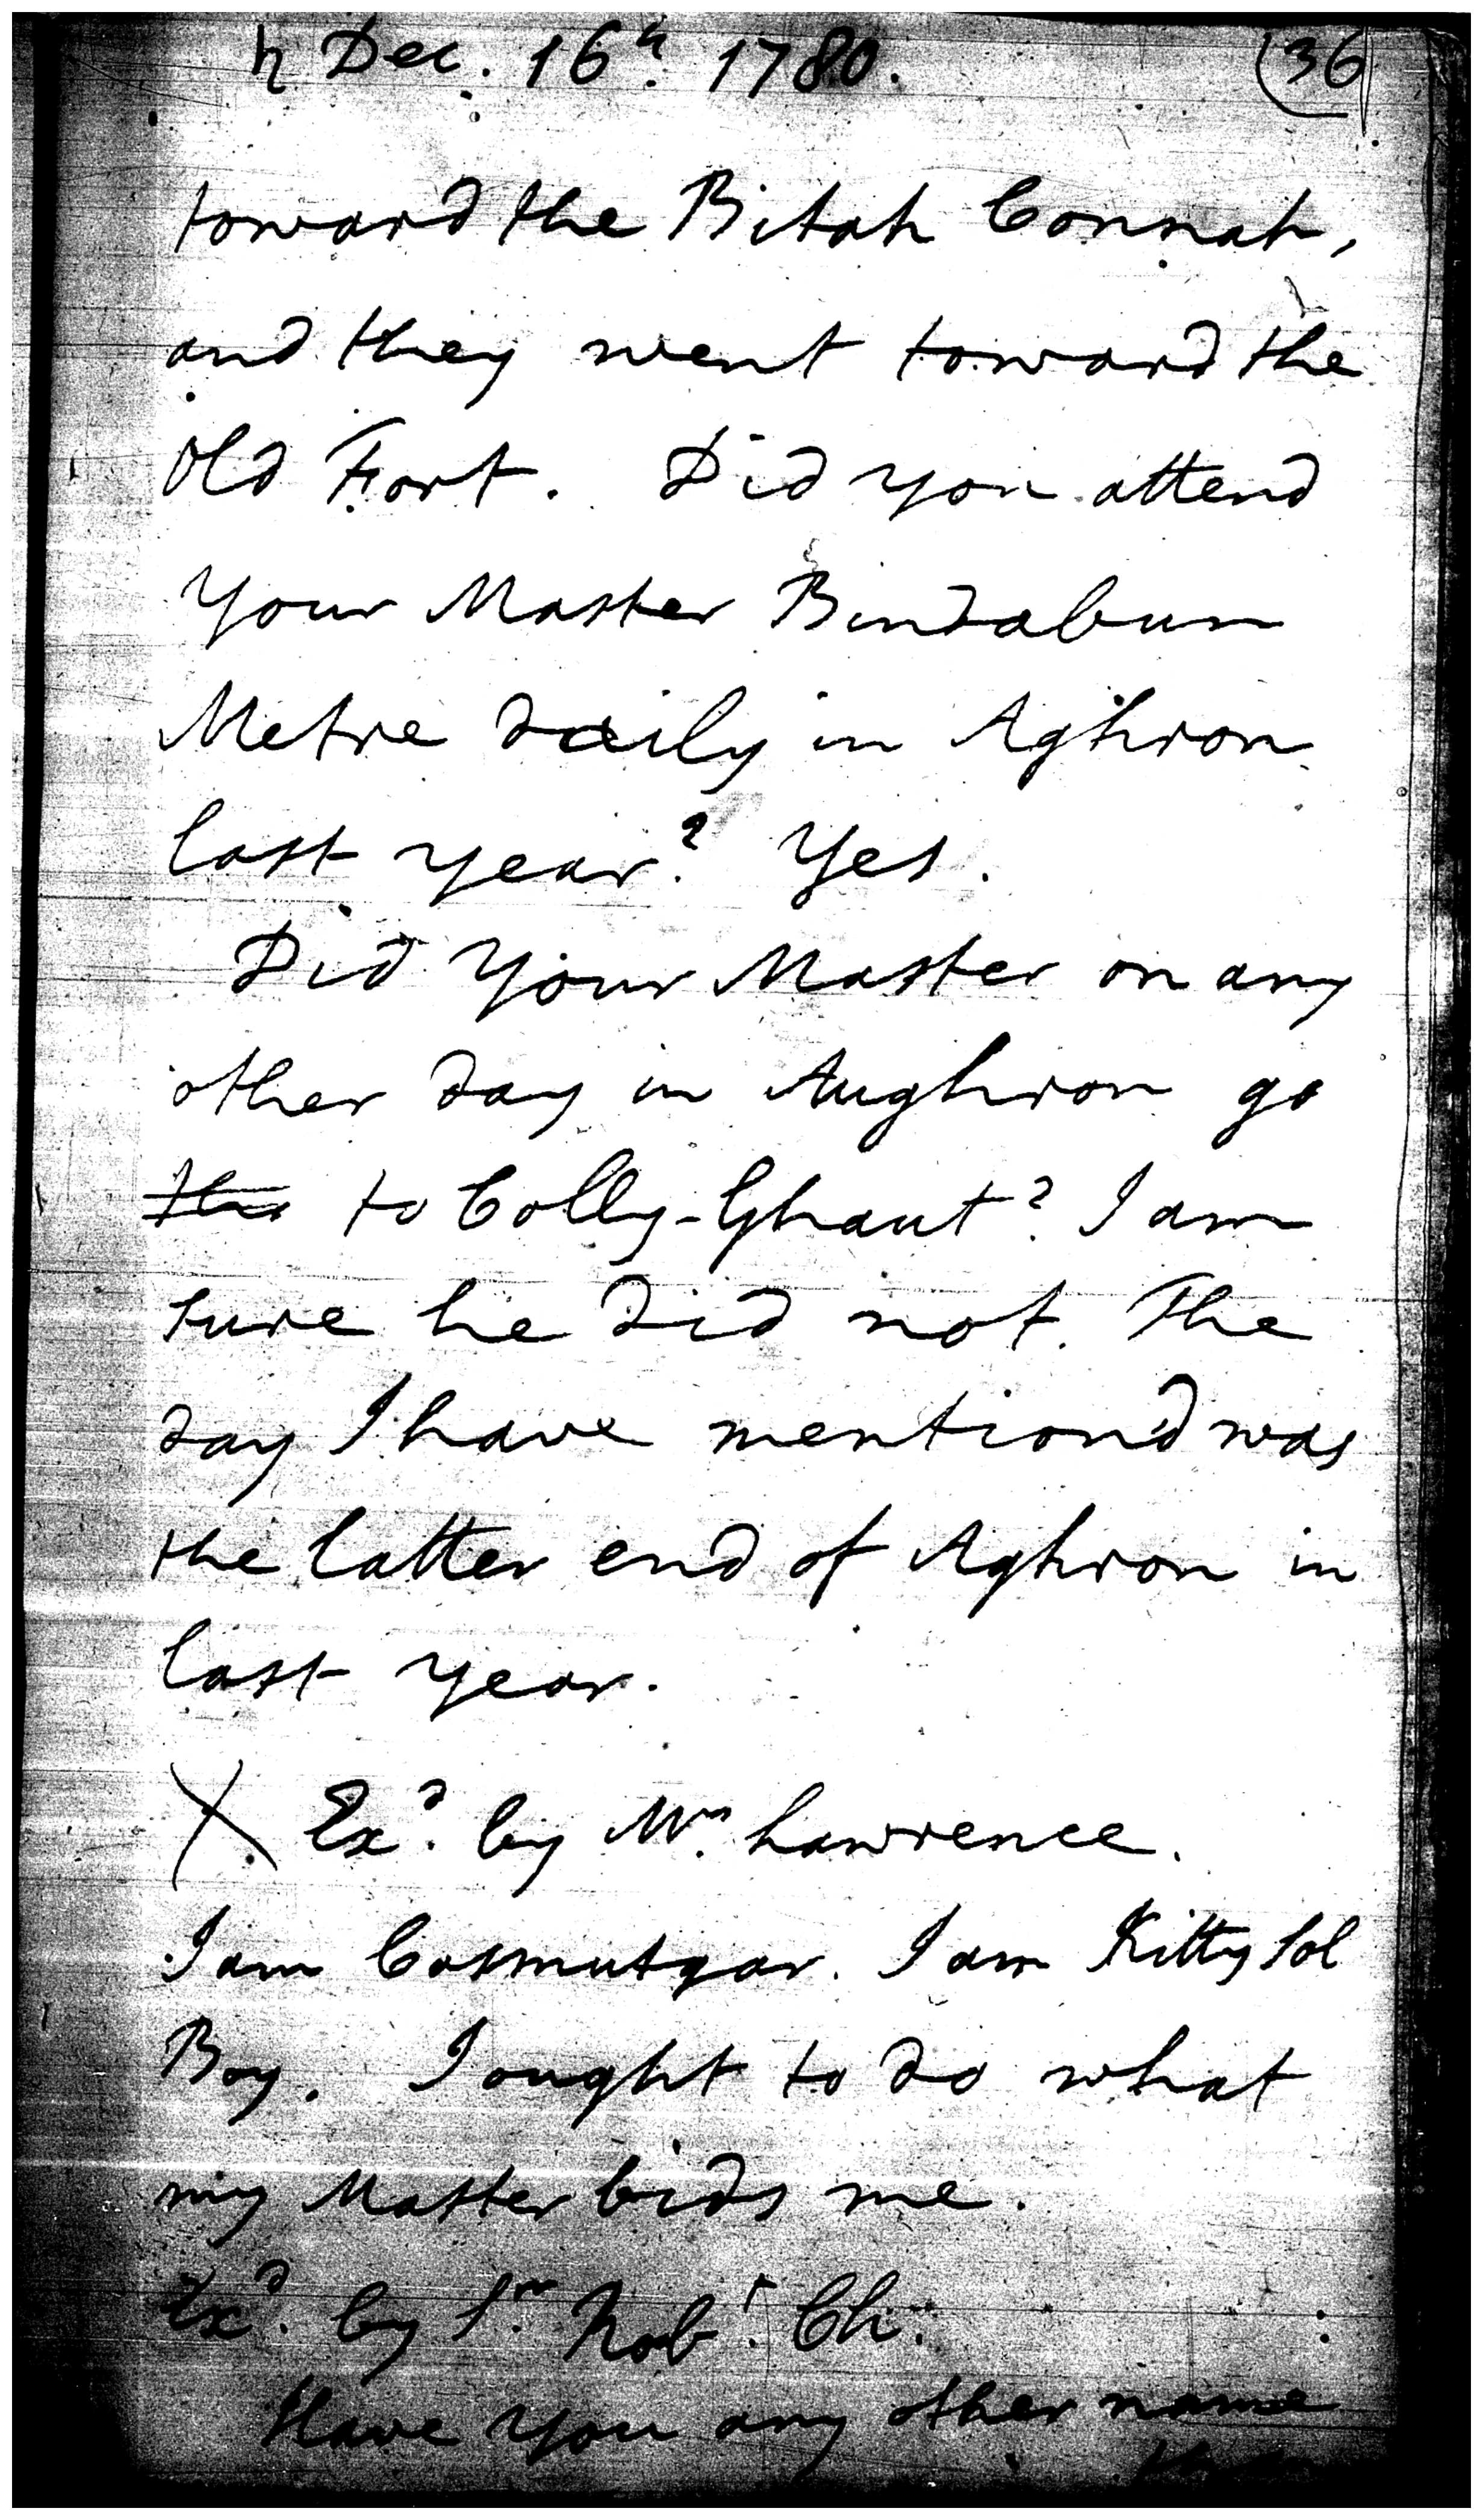 ♄ Dec. 16th. 1780. (36)
toward the Bitah Connah,
and they went toward the
old Fort. Did you attend
your Master Bindabun
Metre daily in Aghron
last year? Yes.
Did your Master on any
other day in Aughron go
to Colly-Ghaut? I am
sure he did not. The
day I have mentiond was
the latter end of Aghron in
last year.
X Exd. by Mr. Lawrence.
I am Cosmutgar. I am Kittysol
Boy. I ought to do what
my Master bids me.
Exd. by Sr. Robt. Ch:
Have you any other name